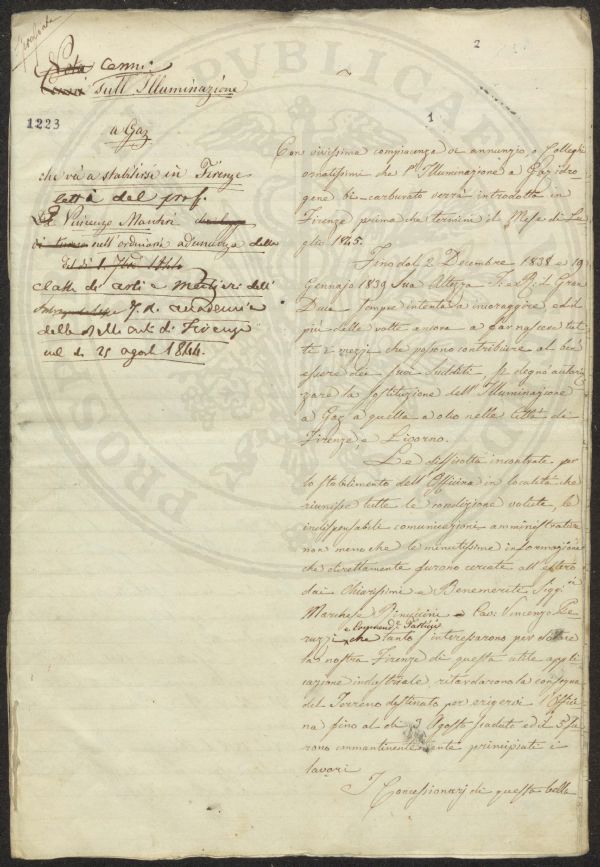 2
Nota cenni
Cenni sull'Illuminazione
1223
a Gaz
che và a stabilirsi in Firenze
letti dal prof.
Vincenzo Manteri
sull'ordinaria adunanza della
classe de arti e mestieri dell'
I. R. accademia
delle Belle arti di Firenze
nel dì 25 agosto 1844.
1
Con vivissima compiacenza vi annunzio o Colleghi
ornatissimi che l'Illuminazione a Gaz idro
gene bi-carburato verrà introdotta in
Firenze prima che termini il Mese di Lu
glio 1845.
Fino dal 2 Decembre 1838 e 19
Gennajo 1839 Sua Altezza I. e R. il Gran
Duca sempre intenta a incoraggire, ed il
più delle volte ancora a far nascere tut
ti i mezzi che possono contribuire al ben
essere dei suoi Sudditi, si degnò autoriz
zare la sostituzione dell'Illuminazione
a Gaz a quella a olio nelle Città di
Firenze, e Livorno.
Le difficoltà incontrate per
lo stabilimento dell'Officina in località che
riunisse tutte le condizione volute, le
indispensabile comunicazione amministrative
non meno che le minutissime informazione
che direttamente furono cercate all'estero
dai Chiarissimi e Benemeriti Sigg.ri
Marchese Rinuccini e Cav: Vincenzo Pe
ruzzi che tanto s'interessarono per dotare
la nostra Firenze di questa utile appli
cazione industriale ritardarono la consegna
del Terreno destinato per erigervi l'Offici
na fino al dì 3 Agosto scaduto ed il 5 fu
rono immantinentemente principiati i
lavori
I Concessionarj di questa bella
PRO
PUBLICA